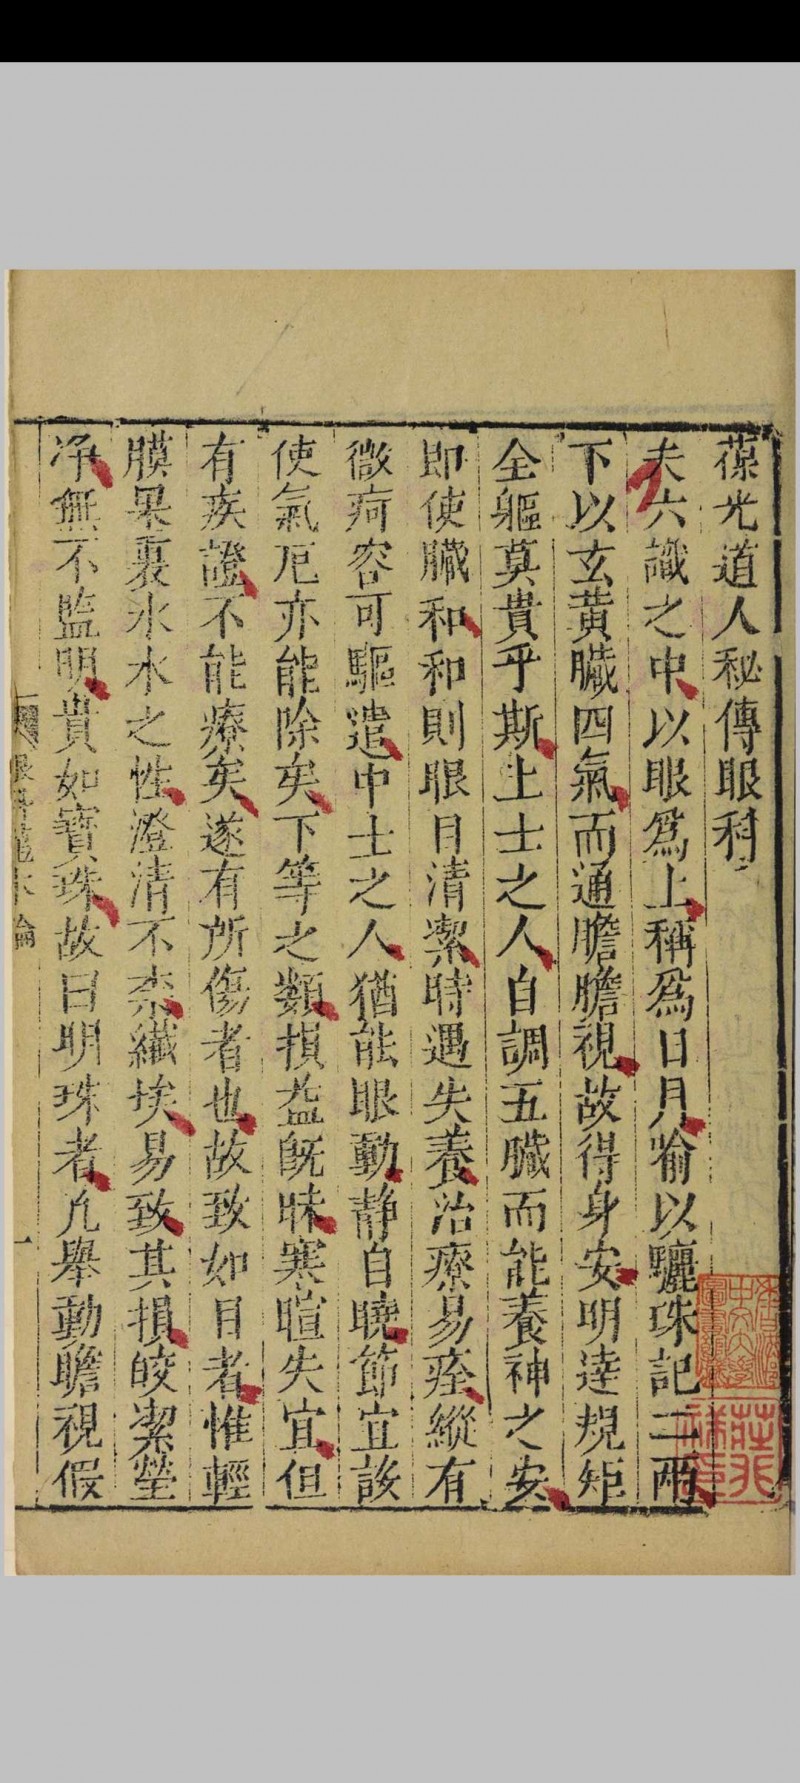 葆光道人秘傳眼科
夫六識之中以眼爲上稱爲日月喻以驪珠記二兩
下以玄黄臟四氣而通膽膽視故得身安明逹規矩
全軀莫貴乎斯上士之人自調五臟而能養神之安
即使臟和和則眼目清潔時遇失養治療易痊縱有
微疴容可驅遣中士之人猶能眼動静自曉節宜該
使氣厄亦能除矣下等之類損益旣昧寒暄失宜但
有疾證不能療矣遂有所傷者也故致如目者惟輕
膜果裏氷水之性澄清不柰纎埃易致其損皎潔瑩
净無不監明貴如寳珠故曰明珠者凢舉動瞻視假
眼科龍木論
一